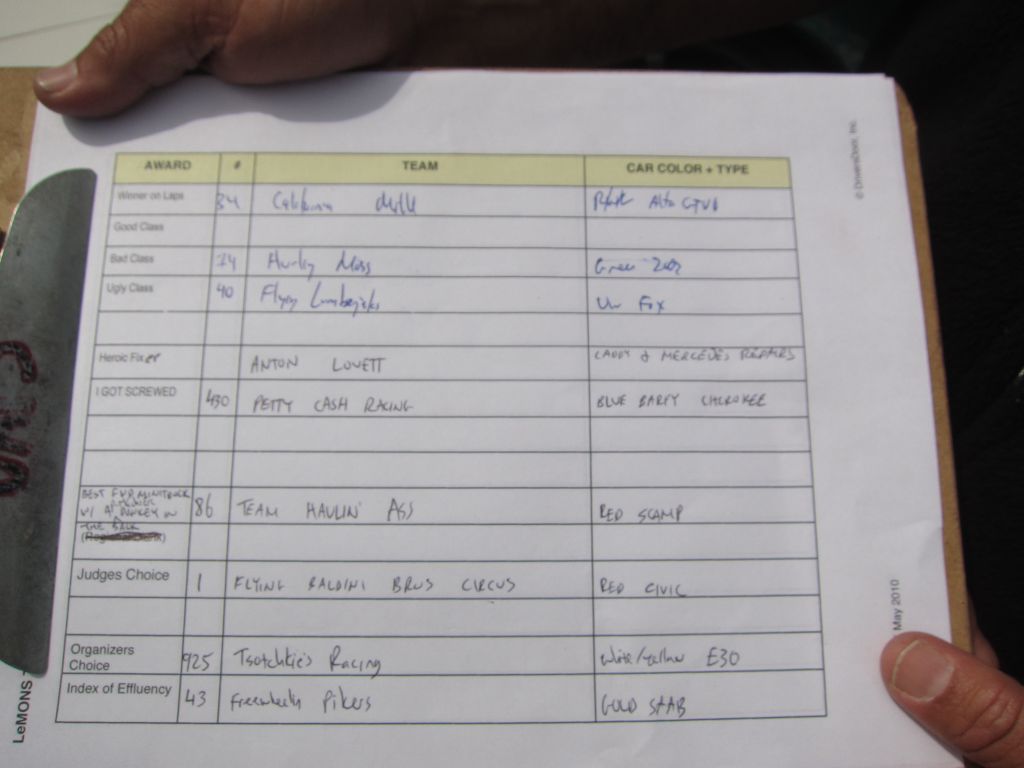 AWARD # TEAM CAR COLOR + TYPE
Winner on Laps 34 California Alfa GTV6
Good Class
Bad Class 74 Hurley Moss Green
Ugly Class 40 Flying Lumberjacks VW Fox
Heroic Fixer ANTON LOVETT CADDY & MERCEDES REPAIRS
I GOT SCREWED 430 PETTY CASH RACING BLUE BARFY CHEROKEE
BEST FWD MINITRUCK
W/ A MEXICAN DONKEY IN 86 TEAM HAULIN' ASS RED SCAMP
THE BACK
Judges Choice 1 FLYING RALDINI BRUS CIRCUS RED CIVIC
Organizers
Choice 925 Tsotchkie's Racing White/Yellow E30
Index of Effluency 43 Freewheelin Pikers GOLD SAAB
LeMONS
May 2010
© DriversDoor, Inc.